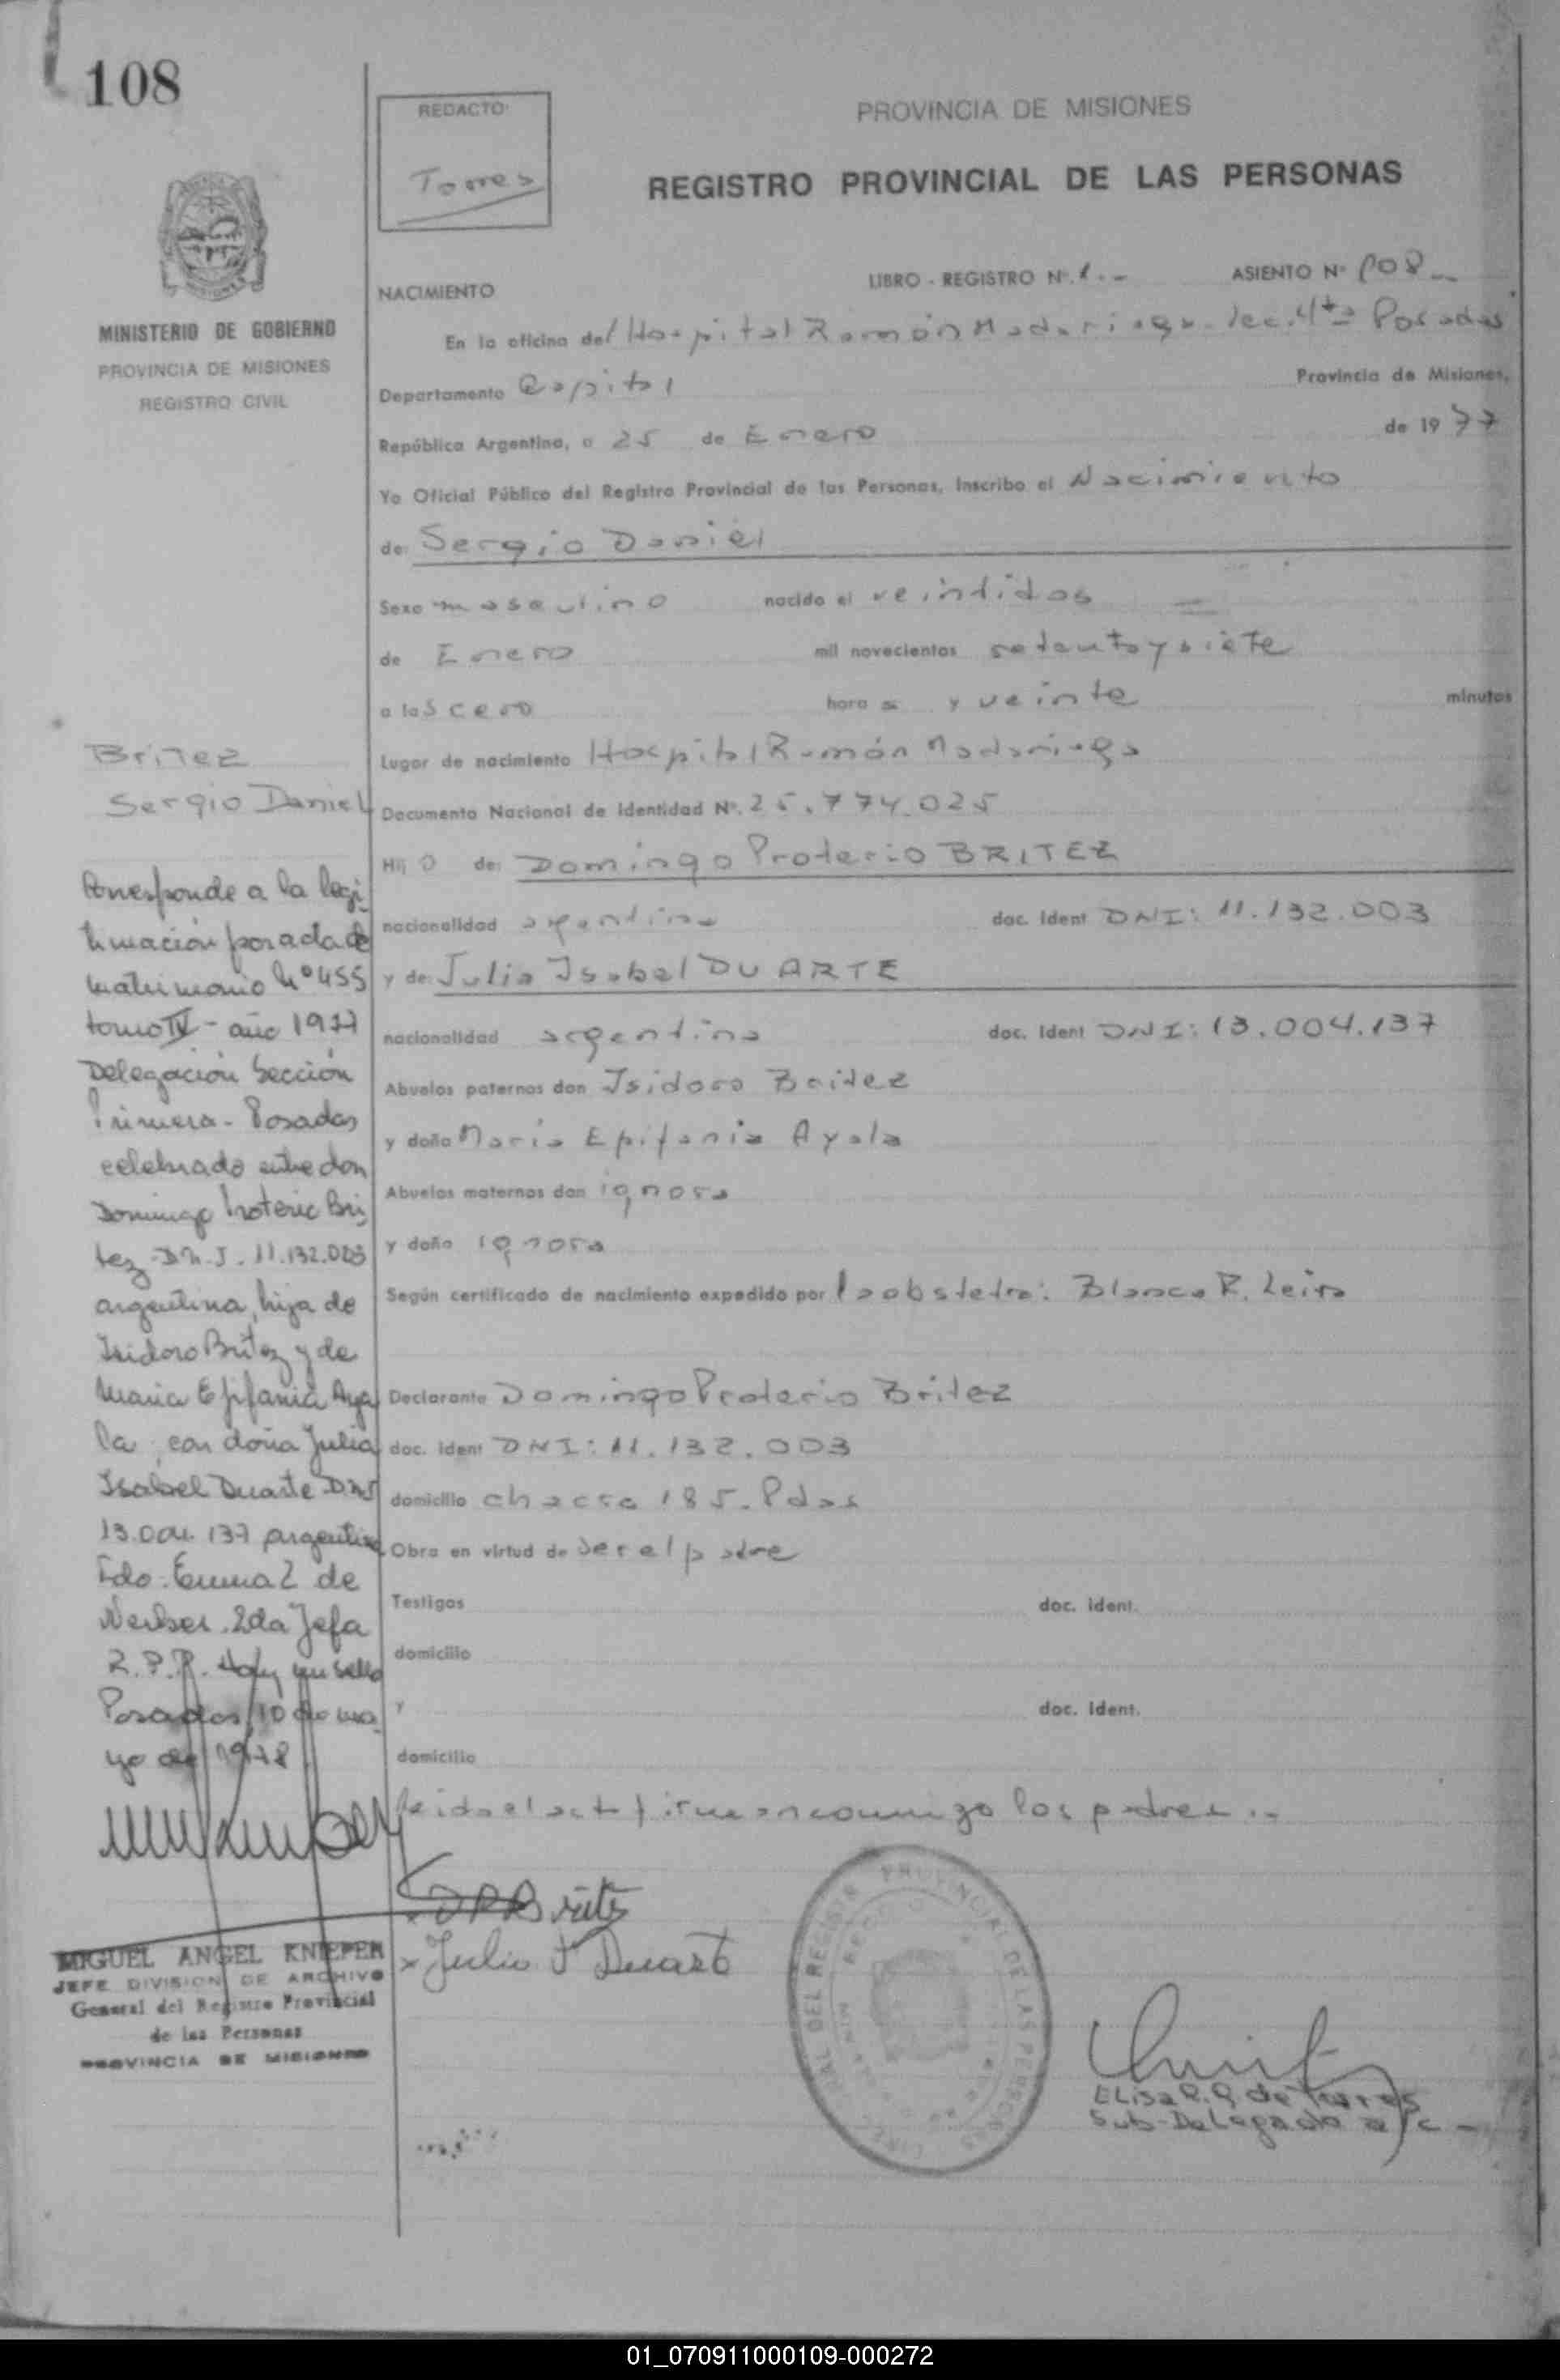 108
REDACTO:
Torres
PROVINCIA DE MISIONES
REGISTRO PROVINCIAL DE LAS PERSONAS
MINISTERIO DE GOBIERNO
PROVINCIA DE MISIONES
REGISTRO CIVIL
NACIMIENTO
LIBRO - REGISTRO Nº. 1.-
ASIENTO Nº 108_
En la oficina del Hospital Ramón Madariaga - Sec. 4ta Posadas
Departamento Capital Provincia de Misiones,
República Argentina, a 25 de Enero de 1977
Yo Oficial Público del Registro Provincial de las Personas, Inscribo el Nacimiento
de: Sergio Daniel
Sexo masculino nacido el veintidos =
de Enero mil novecientos setenta y siete
a las cero hora s y veinte minutos
Lugar de nacimiento Hospital Ramón Madariaga
Documento Nacional de Identidad Nº. 25.774.025
Hij o de: Domingo Proterio BRITEZ
nacionalidad argentina doc. Ident DNI: 11.132.003
y de: Julia Isabel DUARTE
nacionalidad argentina doc. Ident DNI: 13.004.137
Abuelos paternos don Isidoro Britez
y doña María Epifania Ayala
Abuelos maternos don ignora
y doña ignora
Según certificado de nacimiento expedido por la obstetra: Blanca R. Leiva
Declarante Domingo Proterio Britez
doc. ident DNI: 11.132.003
domicilio chacra 185. Pdas
Obra en virtud de ser el padre
Testigos doc. ident.
domicilio
y doc. Ident.
domicilio
leida el acta firman conmigo los padres.-
DPBritez
x Julia I Duarte
Elisa R. G. de Torres
Sub-Delegada a/c -
Britez
Sergio Daniel
Corresponde a la legi
timación por acta de
matrimonio Nº 455
tomo IV - año 1977
Delegación Sección
Primera - Posadas
celebrado entre don
Domingo Proterio Bri
tez - D.N.I. 11.132.003
argentina, hijo de
Isidoro Britez y de
Maria Epifania Aya
la, con doña Julia
Isabel Duarte DNI
13.004.137 argentina
Fdo. Emma Z de
2da Jefa
R.P.P. Hay un sello
Posadas, 10 de ma
yo de 1978
MIGUEL ANGEL KNIEPER
JEFE DIVISION DE ARCHIVO
General del Registro Provincial
de las Personas
PROVINCIA DE MISIONES
01_070911000109-000272